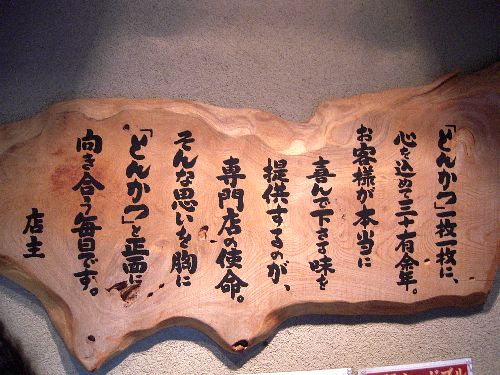 「とんかつ」一枚一枚に、
心を込めて三十有余年。
お客様が本当に
喜んで下さる味を
提供するのが、
専門店の使命。
そんな思いを胸に
「とんかつ」と正面に
向き合う毎日です。
店主